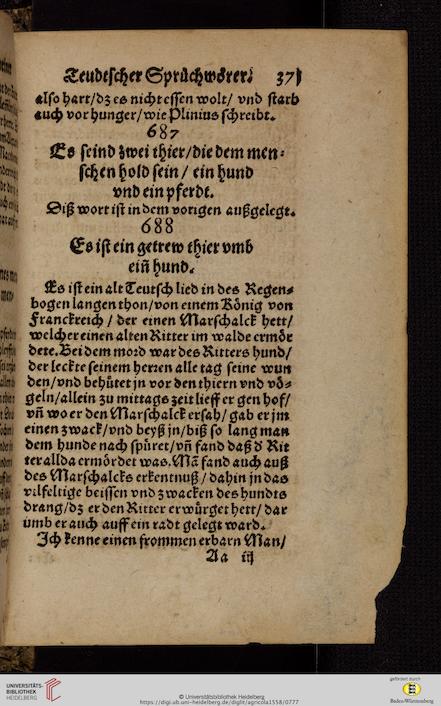 Teudtscher Sprüchwörter. 371
also hart/dz es nicht essen wolt/ vnd starb
auch vor hunger/wie Plinius schreibt.
687
Es seind zwei thier/die dem men-
schen hold sein / ein hund
vnd ein pferdt.
Diß wort ist in dem vorigen außgelegt.
688
Es ist ein getrew thier vmb
ein̄ hund.
Es ist ein alt Teutsch lied in des Regen-
bogen langen thon/von einem König von
Franckreich / der einen Marschalck hett/
welcher einen alten Ritter im walde ermör
dete. Bei dem mord war des Ritters hund/
der leckte seinem herren alle tag seine wun
den/vnd behütet jn vor den thiern vnd vö-
geln/allein zu mittags zeit lieff er gen hof/
vn̄ wo er den Marschalck ersah/ gab er jm
einen zwack/vnd beyß jn/biß so lang man
dem hunde nach spüret/vn̄ fand daß d' Rit
ter allda ermördet was. Mā fand auch auß
des Marschalcks erkentnuß / dahin jn das
vilfeltige beissen vnd zwacken des hundts
drang/dz er den Ritter erwürget hett/ dar
umb er auch auff ein radt gelegt ward.
Ich kenne einen frommen erbarn Man/
Aa iij
UNIVERSITÄTS-
BIBLIOTHEK
HEIDELBERG
© Universitätsbibliothek Heidelberg
https://digi.ub.uni-heidelberg.de/diglit/agricola1558/0777
gefördert durch
Baden-Württemberg